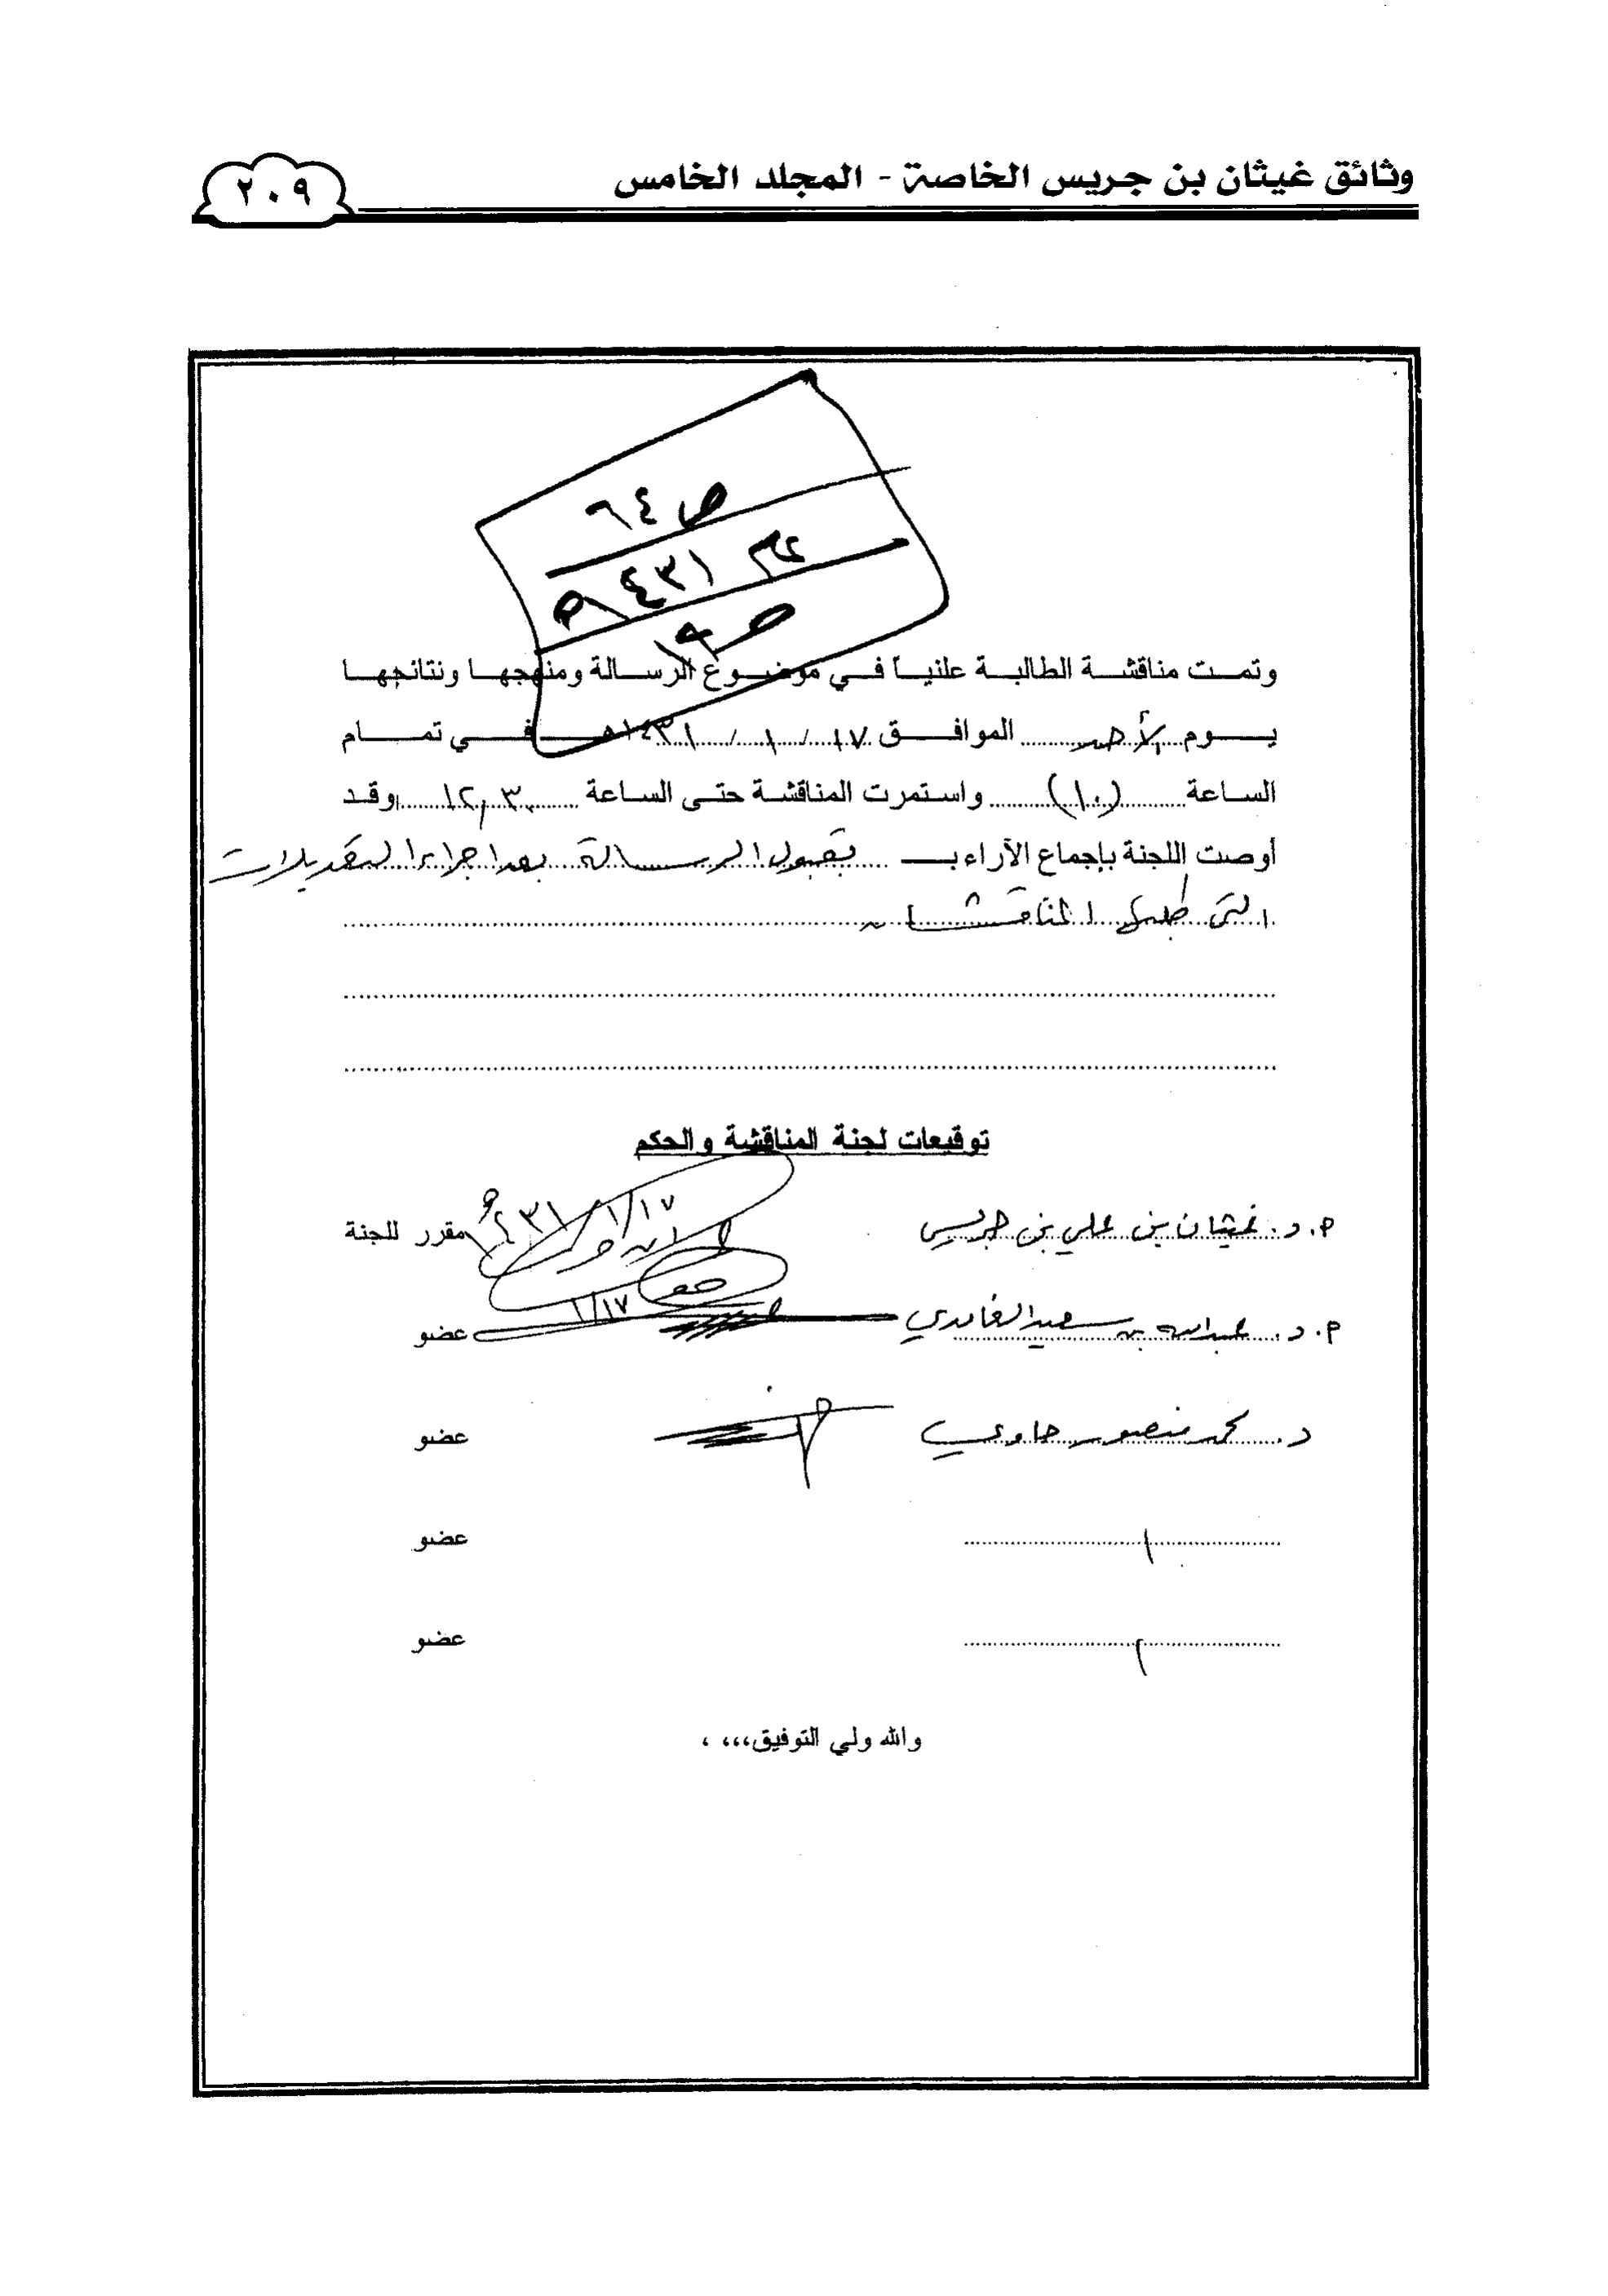 وثائق غيثان بن جريس الخاصة - المجلد الخامس
٢٠٩
ص ٦٤
١٤٣١هـ
ص ١٩
وتمت مناقشة الطالبة علنياً في موضوع الرسالة ومنهجها ونتائجها
يوم الأحد الموافق ١٧ / ١ / ١٤٣١هـ في تمام
الساعة (١٠) واستمرت المناقشة حتى الساعة ١٢,٣٠ وقد
أوصت اللجنة بإجماع الآراء بـ بقبول الرسالة بعد اجراء التعديلات
التي طلبها المناقشان
توقيعات لجنة المناقشة والحكم
م.د. غيثان بن علي بن جريس ١٧/١/١٤٣١هـ مقرر للجنة
م.د. عبدالله بن سعيد الغامدي ١٧/١ عضو
د. محمد منصور حاوي عضو
عضو
عضو
والله ولي التوفيق،،، ،